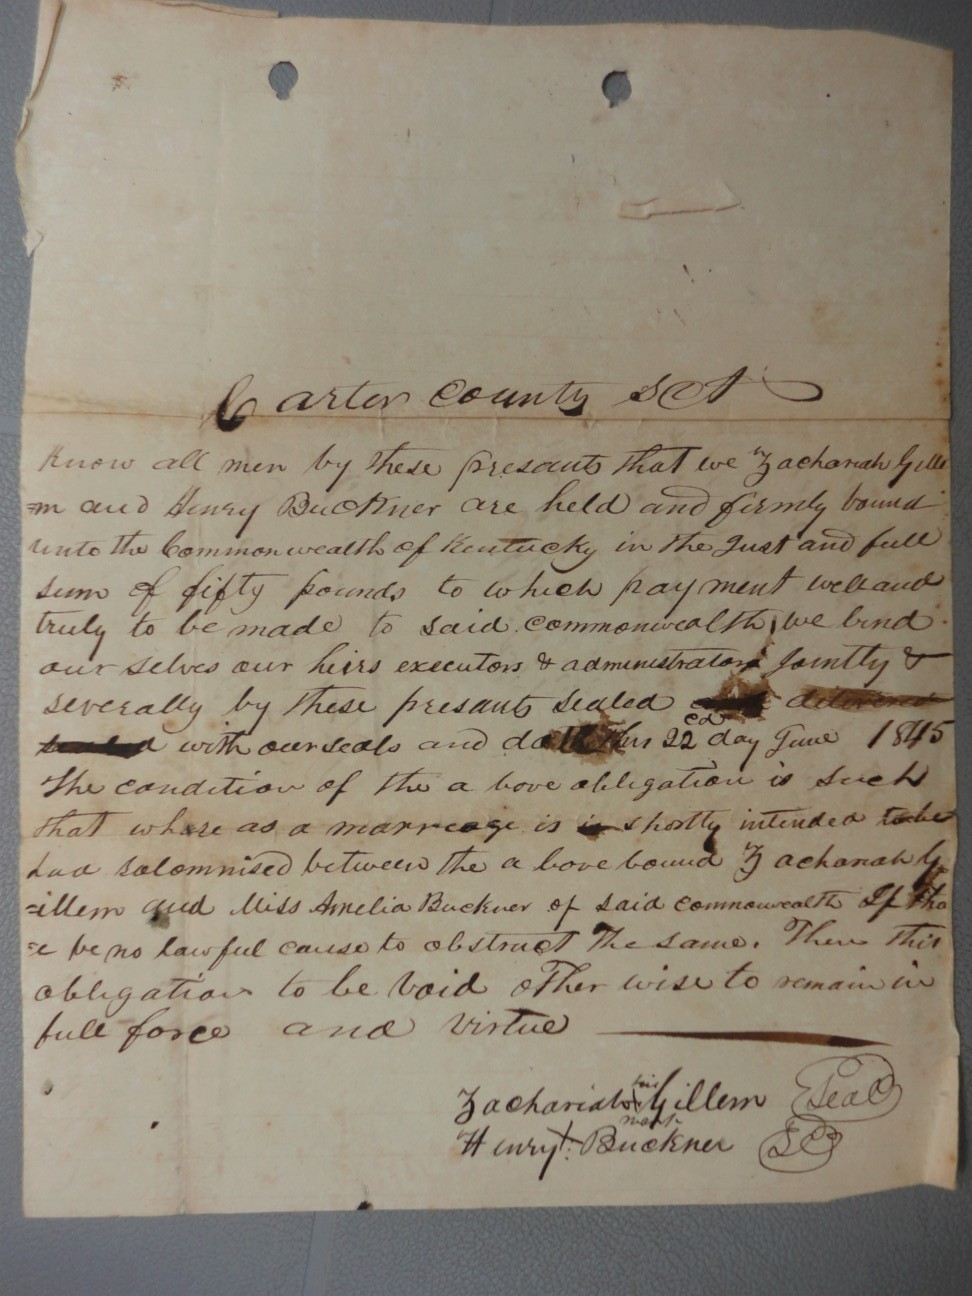 Carter County Sct
Know all men by these presants that we Zachariah Gille
=m and Henry Buckner are held and firmly bound
unto the Commonwealth of Kentucky in the Just and full
sum of fifty pounds to which payment well and
truly to be made to said commonwealth, we bind
our selves our heirs executors & administrators Jointly &
severally by these presants sealed and delivered
sealed with our seals and dated this 22cd day June 1845
The condition of the a bove obligation is such
that whare as a marreage is is shortly intended to be
had solomnised between the a bove bound Zachariah G
=illem and Miss Amelia Buckner of said commonwealth If tha
=e be no lawful cause to obstruct the same. Then this
obligation to be void other wise to remain in
full force and virtue
Zachariah his Gillem Seal
mark
Henry X Buckner